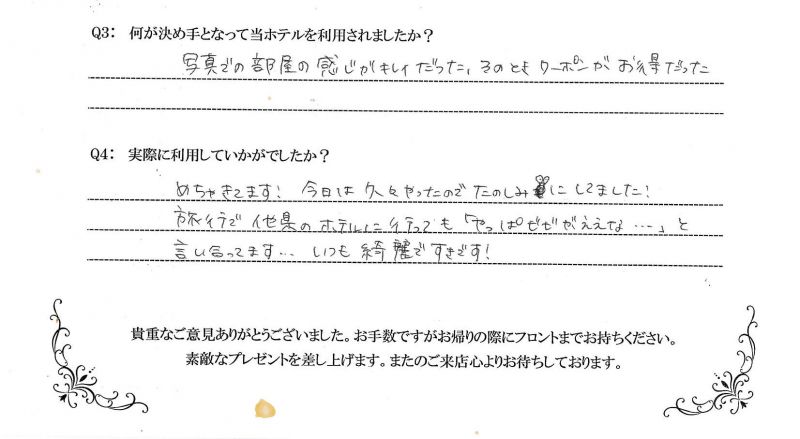 Q3: 何が決め手となって当ホテルを利用されましたか？
写真での部屋の感じがキレイだった、そのときクーポンがお得だった
Q4: 実際に利用していかがでしたか？
めちゃきてます! 今日は久々やったのでたのしみにしてました!
旅行で他県のホテルに行っても「やっぱゼゼがええな…」と
言い合ってます… いつも綺麗ですきです!
貴重なご意見ありがとうございました。お手数ですがお帰りの際にフロントまでお持ちください。
素敵なプレゼントを差し上げます。またのご来店心よりお待ちしております。